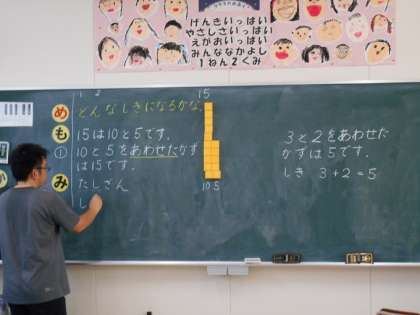 げんきいっぱい
やさしさいっぱい
えがおいっぱい
みんななかよし
1ねん2くみ
15
め どんなしきになるかな。
も 15は10と5です。
① 10と5をあわせたかず
は15です。
み たしざん
し
10 5
3と2をあわせた
かずは5です。
しき 3+2=5